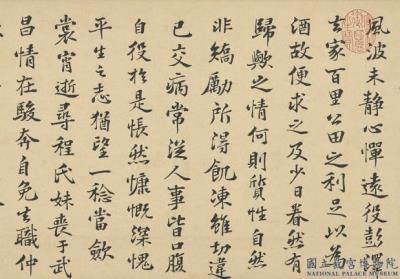 風波未靜心憚遠役彭澤
去家百里公田之利足以為
酒故便求之及少日眷然有
歸歟之情何則質性自然
非矯勵所得飢凍雖切違
已交病常從人事皆口腹
自役於是悵然慷慨深愧
平生之志猶望一稔當斂
裳宵逝尋程氏妹喪于武
昌情在駿奔自免去職仲
國立故宮博物院
NATIONAL PALACE MUSEUM